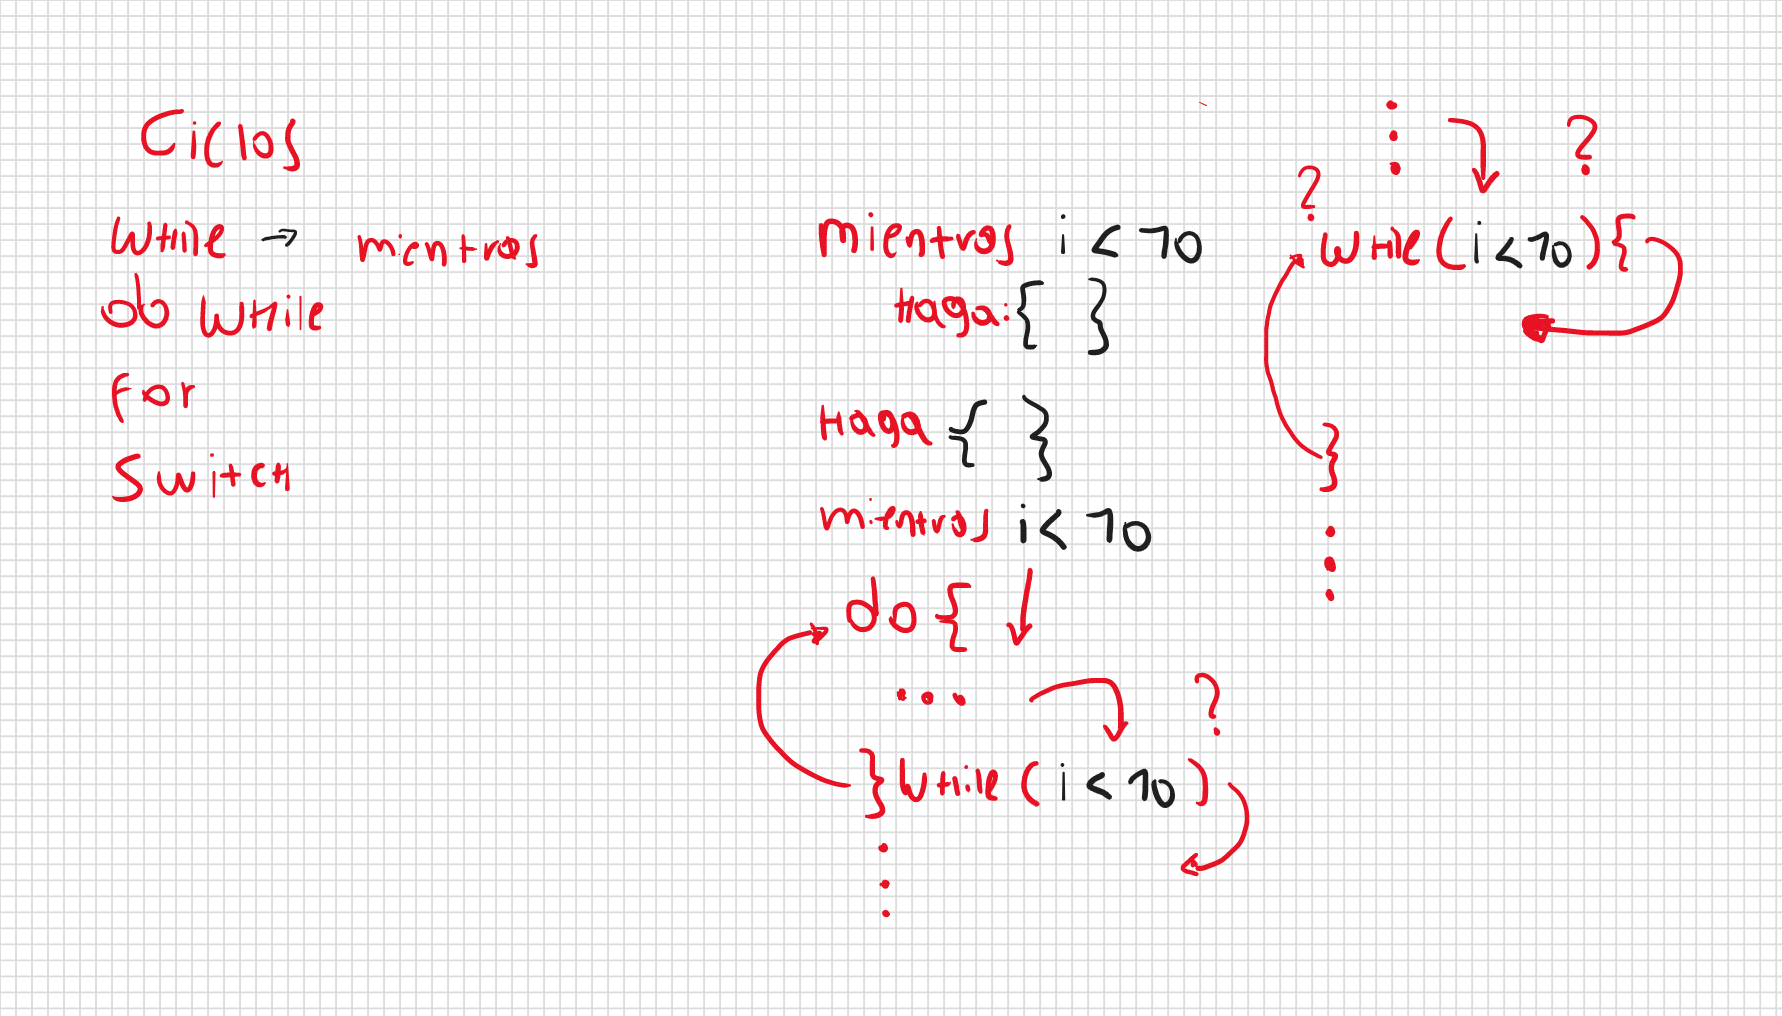 Ciclos
while → mientras
do while
for
Switch
mientras i < 10
Haga: { }
Haga { }
mientras i < 10
do {
...
} while ( i < 10 )
?
?
?
while ( i < 10 ) {
}